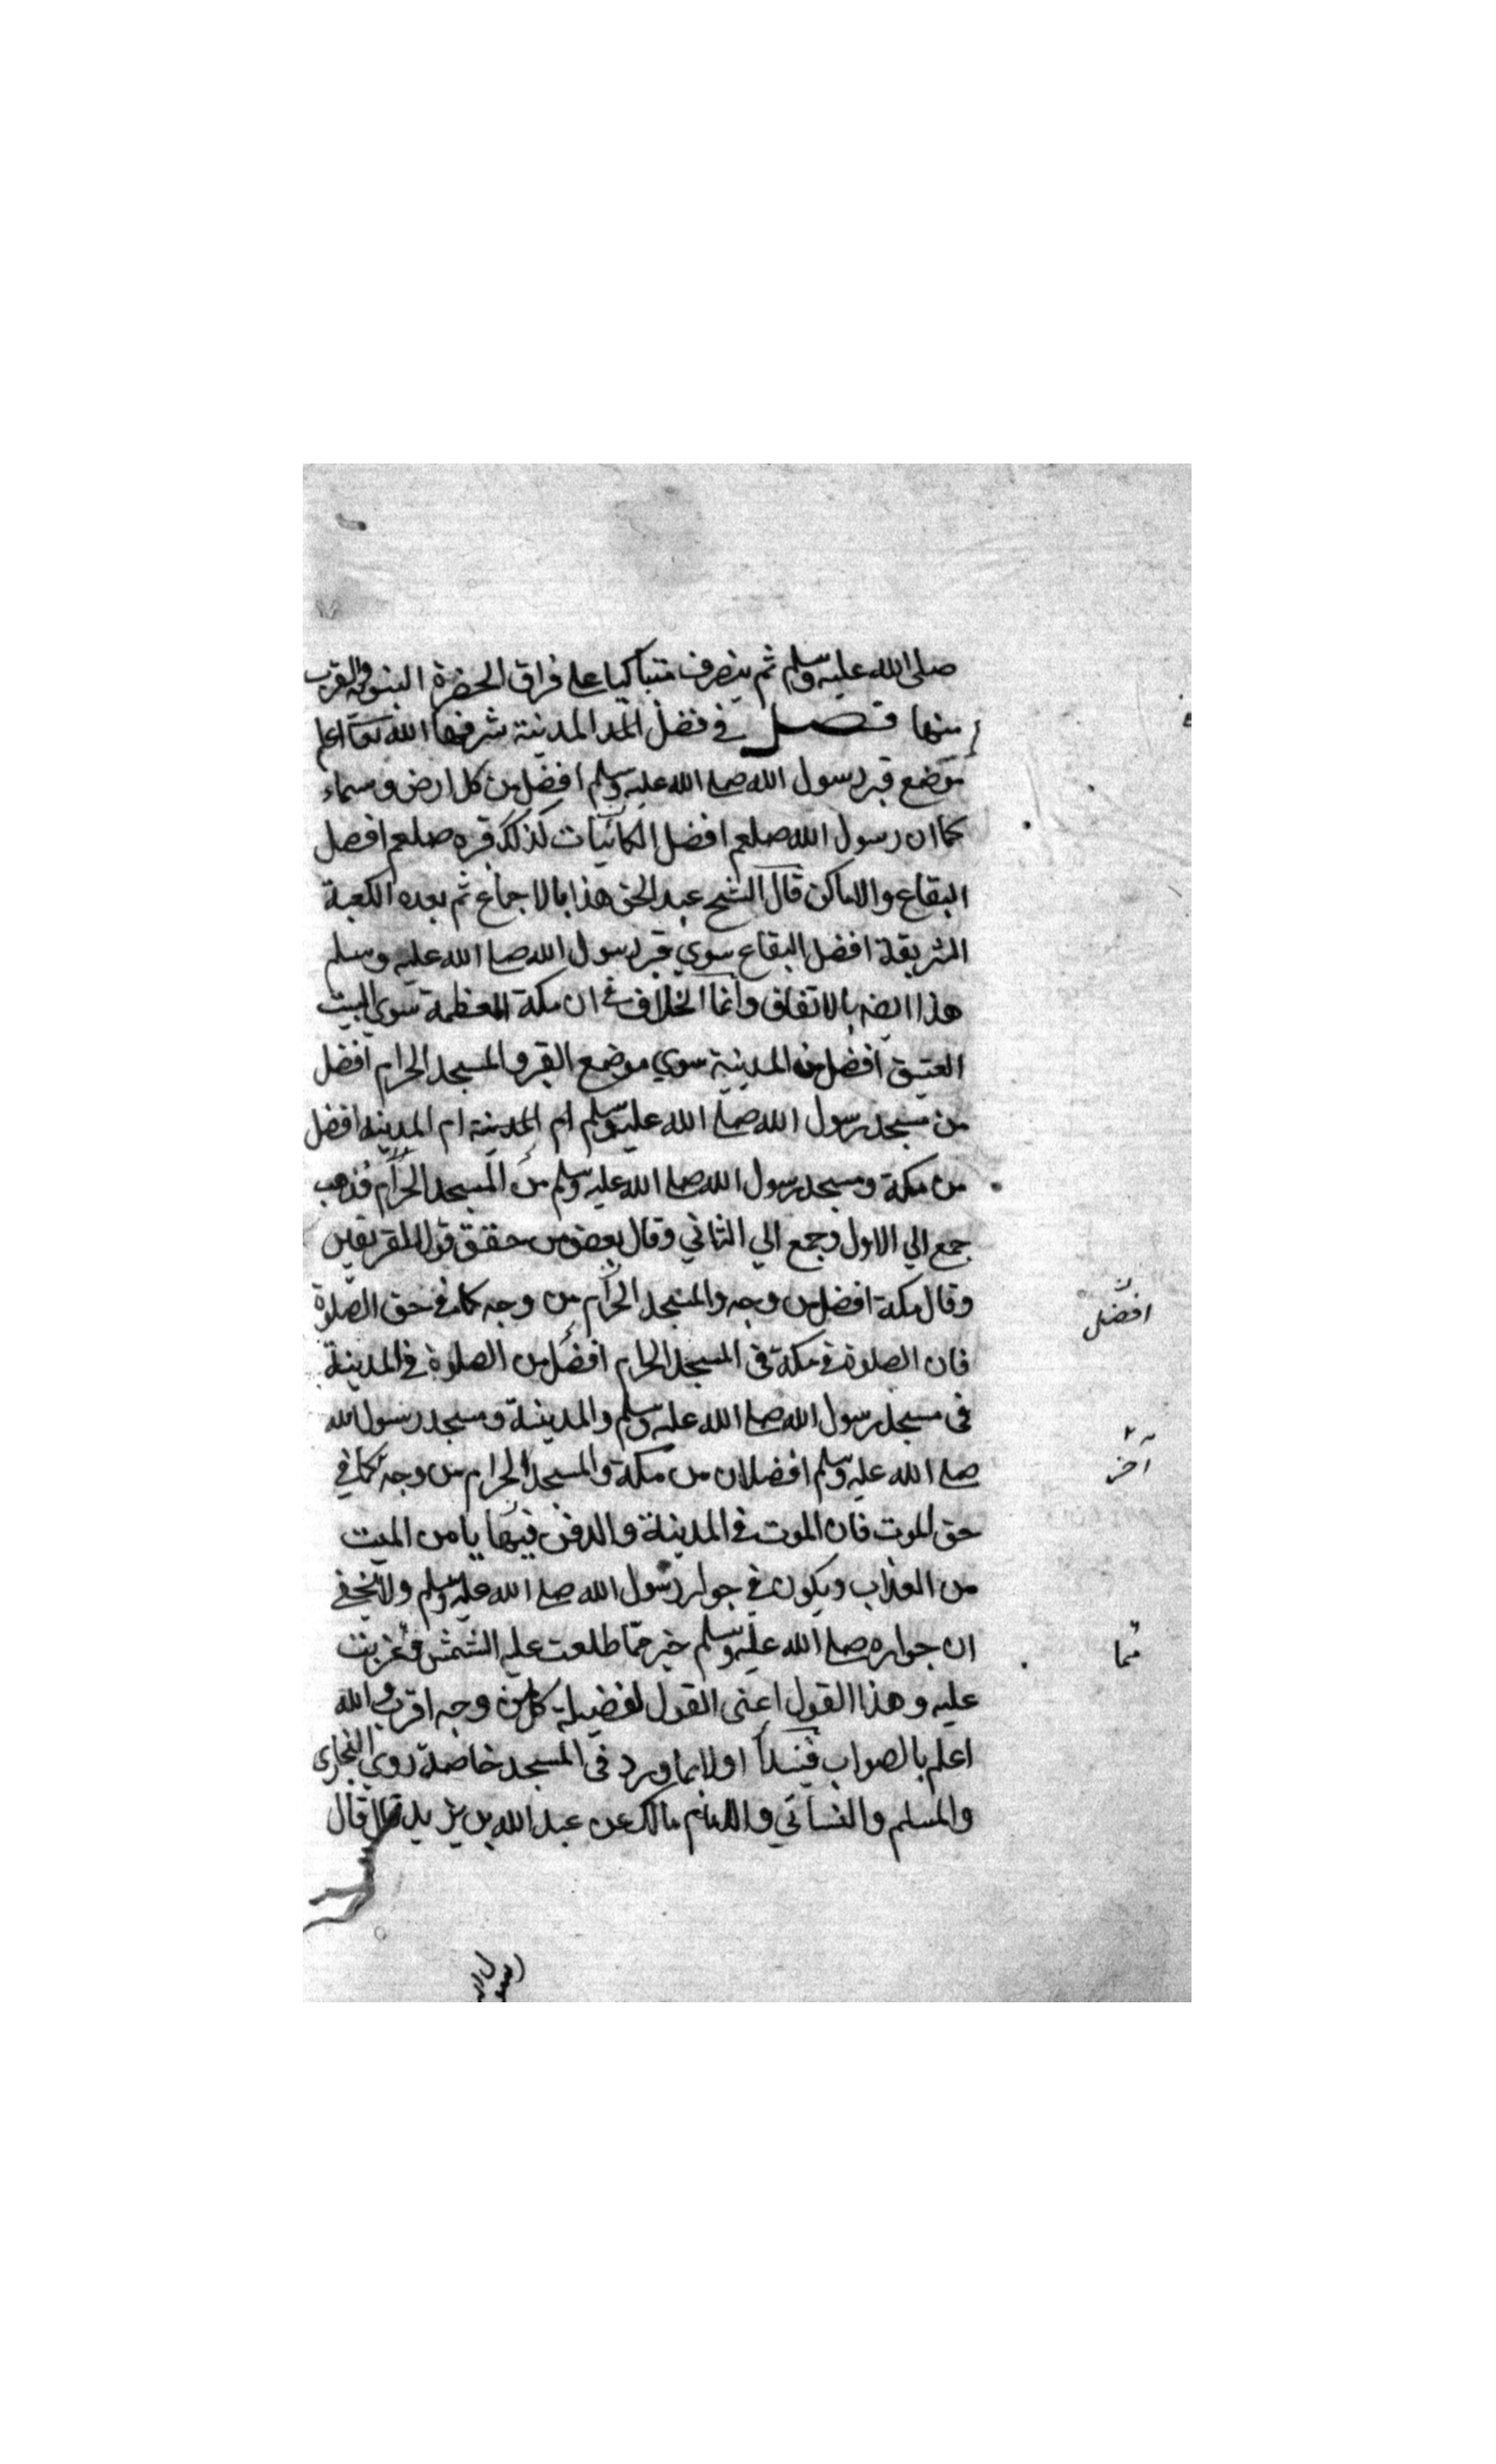 صلى الله عليه وسلم ثم ينصرف متباكيا على فراق الحضرة النبوية والقرب
منها فصل في فضل المدينة شرفها الله تعا اعلم
موضع قبر رسول الله صلى الله عليه وسلم افضل من كل ارض وسماء
كما ان رسول الله صلعم افضل الكائنات كذلك قبره صلعم افضل
البقاع والاماكن قال الشيخ عبد الحق هذا بالاجماع ثم بعده الكعبة
الشريفة افضل البقاع سوي قبر رسول الله صلى الله عليه وسلم
هذا ايضه بالاتفاق وانما الخلاف في ان مكة المعظمة سوي البيت
العتيق افضل من المدينة سوي موضع القبر والمسجد الحرام افضل
من مسجد رسول الله صلى الله عليه وسلم ام المدينة ام المدينة افضل
من مكة ومسجد رسول الله صلى الله عليه وسلم من المسجد الحرام فذهب
جمع الي الاول وجمع الي الثاني وقال بعض من حقق قول الفريقين
وقال مكة افضل من وجه والمسجد الحرام من وجه كما في حق الصلوة
افضل
فان الصلوة في مكة في المسجد الحرام افضل من الصلوة في المدينة
في مسجد رسول الله صلى الله عليه وسلم والمدينة ومسجد رسول الله
صلى الله عليه وسلم افضلان من مكة والمسجد الحرام من وجه كما في
آخر
حق الموت فان الموت في المدينة والدفن فيها يامن الميت
من العذاب ويكون في جوار رسول الله صلى الله عليه وسلم ولا يخفي
ان جواره صلى الله عليه وسلم خير مما طلعت عليه الشمس وغربت
مما
عليه وهذا القول اعني القول لفضيلة كل من وجه اقرب والله
اعلم بالصواب فنبدأ اولا بما ورد في المسجد خاصة روي البخاري
والمسلم والنسائي والامام مالك عن عبد الله بن يزيد قال قال